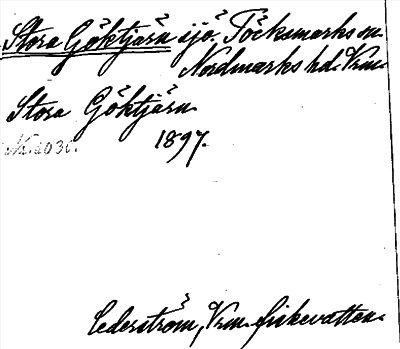 Stora Göktjärn sjö. Töcksmarks sn.
Nordmarks hd. Vrm.
Stora Göktjärn
1897.
Cederström, Vrm. fiskevatten.